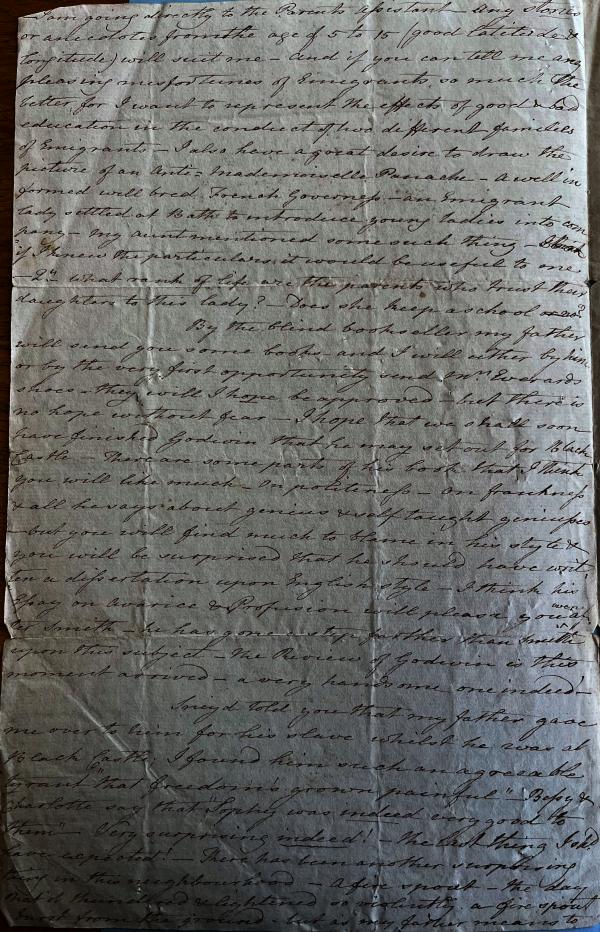 I am going directly to the Parents Assistant - Any stories
or anecdotes from the age of 5 to 15 (good latitude &
longitude) will suit me - And if you can tell me any
pleasing misfortunes of Emigrants, so much the
better, for I want to represent the effects of good & bad
education in the conduct of two different families
of Emigrants - I also have a great desire to draw the
picture of an Anti-Mademoiselle Panache - a well in
formed well bred French Governess - an Emigrant
lady settled at Bath to introduce young ladies into com
pany - my aunt mentioned some such thing -
if I knew the particulars it would be useful to me
- 2d. what rank of life are the parents who trust their
daughters to this lady? - Does she keep a school
By the blind bookseller my father
will send you some books - and I will either by him
or by the very first opportunity send Mrs Everards
shoes - they will I hope be approved - but there is
no hope without fear - I hope that we shall soon
have finished Godwin that he may set out for Black
Castle - There are some parts of his book that I think
you will like much - On politeness - On frankness
& all he says about genius & self taught geniusses
- but you will find much to blame in his style &
you will be surprised that he should have writ
ten a dissertation upon English style - I think his
Essay on Avarice & Profusion will please you
Smith - he has gone a step farther than Smith
upon this subject - The Review of Godwin is this
moment arrived - a very handsome one indeed -
Sneyd told you that my father gave
me over to him for his slave whilst he was at
Black Castle, I found him such an agreeable
tyrant "that freedom's grown painful" Bessy &
Charlotte say that "Sophy was indeed very good to
them" Very surprising indeed! - The last thing I shd
have expected! - There has been another surprising
thing in this neighbourhood - A fire spout - the day
that it thundered & lightened so violently a fire spout
burst from the ground - but as my father means to